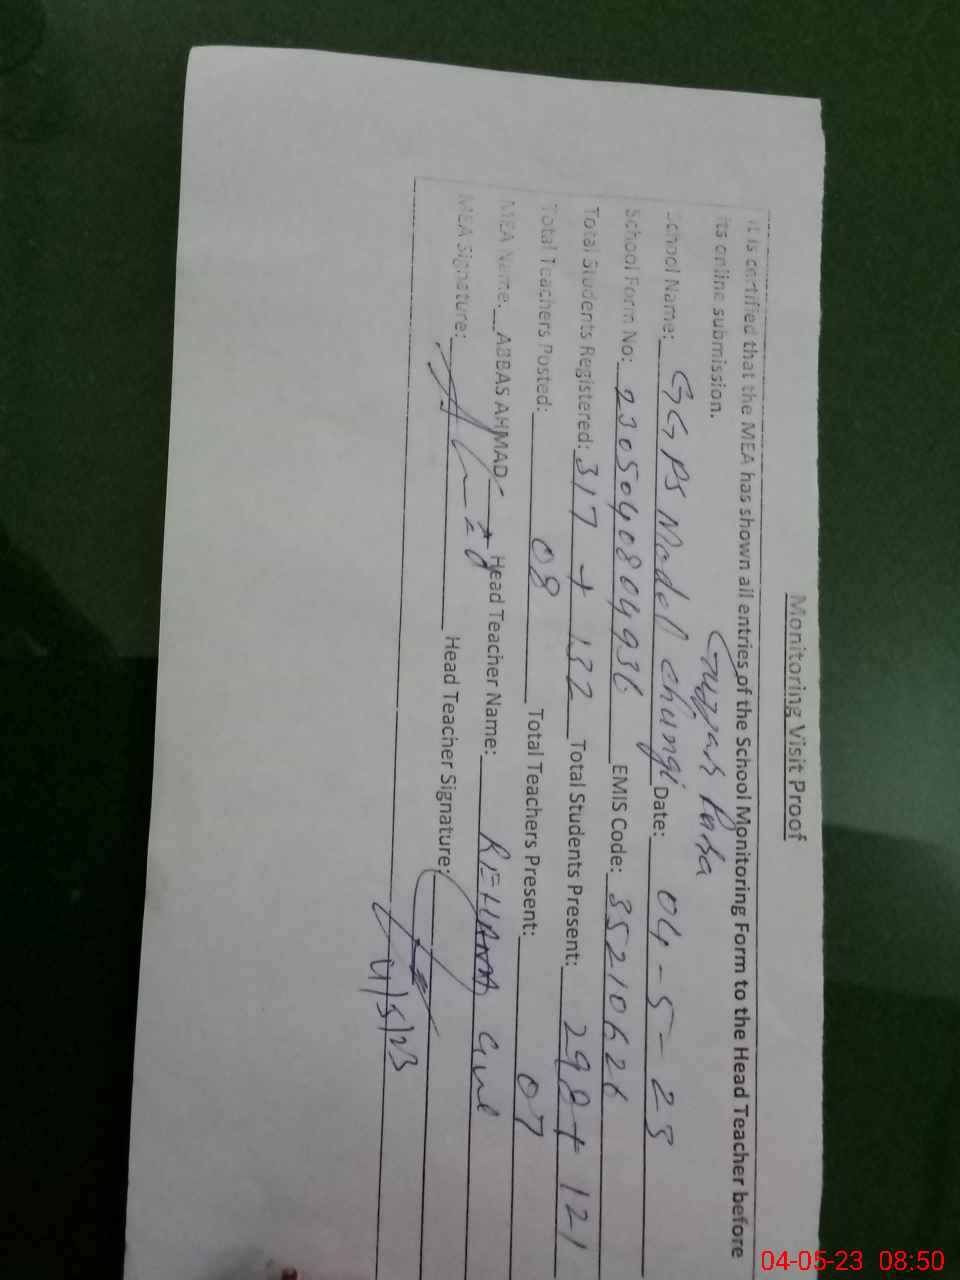 Monitoring Visit Proof
It is certified that the MEA has shown all entries of the School Monitoring Form to the Head Teacher before
its online submission.
Gujjar Pura
School Name: GGPS Model Chungi Date: 04-5-23
School Form No: 2305040804936 EMIS Code: 35210626
Total Students Registered: 317 + 132 Total Students Present: 298 + 121
Total Teachers Posted: 08 Total Teachers Present: 07
MEA Name: ABBAS AHMAD Head Teacher Name: REHANA Gul
MEA Signature: Head Teacher Signature:
4/5/23
04-05-23 08:50